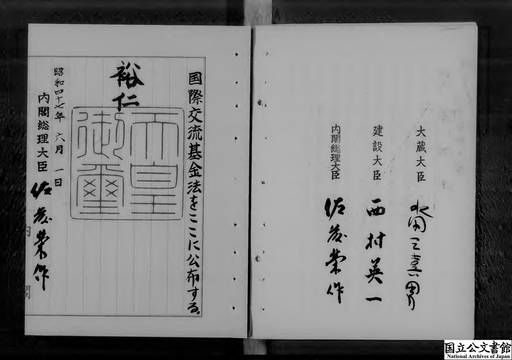 大蔵大臣 水田三喜男
建設大臣 西村英一
内閣総理大臣 佐藤榮作
国際交流基金法をここに公布する。
裕仁
天皇
御璽
昭和四十七年六月一日
内閣総理大臣 佐藤榮作
内閣
国立公文書館
National Archives of Japan